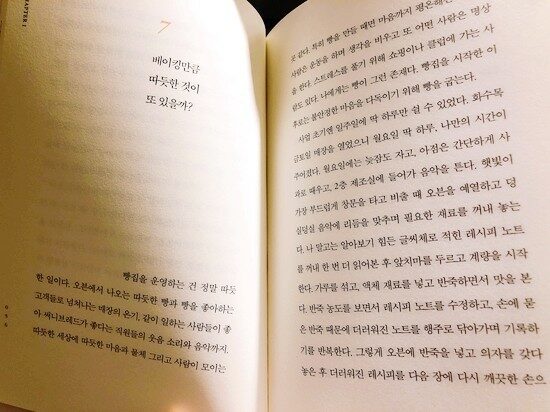 CHAPTER 1
7
베이킹만큼
따듯한 것이
또 있을까?
빵집을 운영하는 건 정말 따듯
한 일이다. 오븐에서 나오는 따듯한 빵과 빵을 좋아하는
고객들로 넘쳐나는 매장의 온기, 같이 일하는 사람들이 좋
아 써니브레드가 좋다는 직원들의 웃음 소리와 음악까지.
따듯한 세상에 따듯한 마음과 물체 그리고 사람이 모이는
056
못 같다. 특히 빵을 만들 때면 마음까지 평온해진
사람은 운동을 하며 생각을 비우고 또 어떤 사람은 명상
을 한다. 스트레스를 풀기 위해 쇼핑이나 클럽에 가는 사
람도 있다. 나에게는 빵이 그런 존재다. 빵집을 시작한 이
후로는 불안정한 마음을 다독이기 위해 빵을 굽는다.
사업 초기엔 일주일에 딱 하루만 쉴 수 있었다. 화수목
금토일 매장을 열었으니 월요일 딱 하루, 나만의 시간이
주어졌다. 월요일에는 늦잠도 자고, 아점은 간단하게 사
과로 때우고, 2층 제조실에 들어가 음악을 튼다. 햇빛이
가장 부드럽게 창문을 타고 비출 때 오븐을 예열하고 덩
실덩실 음악에 리듬을 맞추며 필요한 재료를 꺼내 놓는
다. 나 말고는 알아보기 힘든 글씨체로 적힌 레시피 노트
를 꺼내 한 번 더 읽어본 후 앞치마를 두르고 계량을 시작
한다. 가루를 섞고, 액체 재료를 넣고 반죽하면서 맛을 본
다. 반죽 농도를 보면서 레시피 노트를 수정하고, 손에 묻
은 반죽 때문에 더러워진 노트를 행주로 닦아가며 기록하
기를 반복한다. 그렇게 오븐에 반죽을 넣고 의자를 갖다
놓은 후 더러워진 레시피를 다음 장에 다시 깨끗한 손으